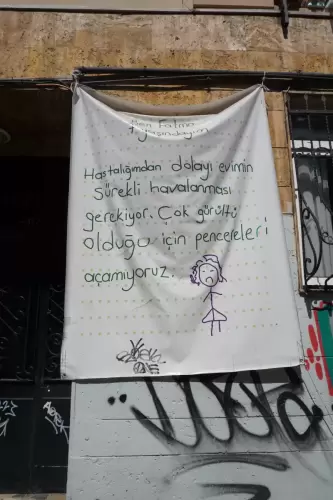 Ben Fatma
7 yaşındayım
Hastalığımdan dolayı evimin
sürekli havalanması
gerekiyor. Çok gürültü
olduğu için pencereleri
açamıyoruz.